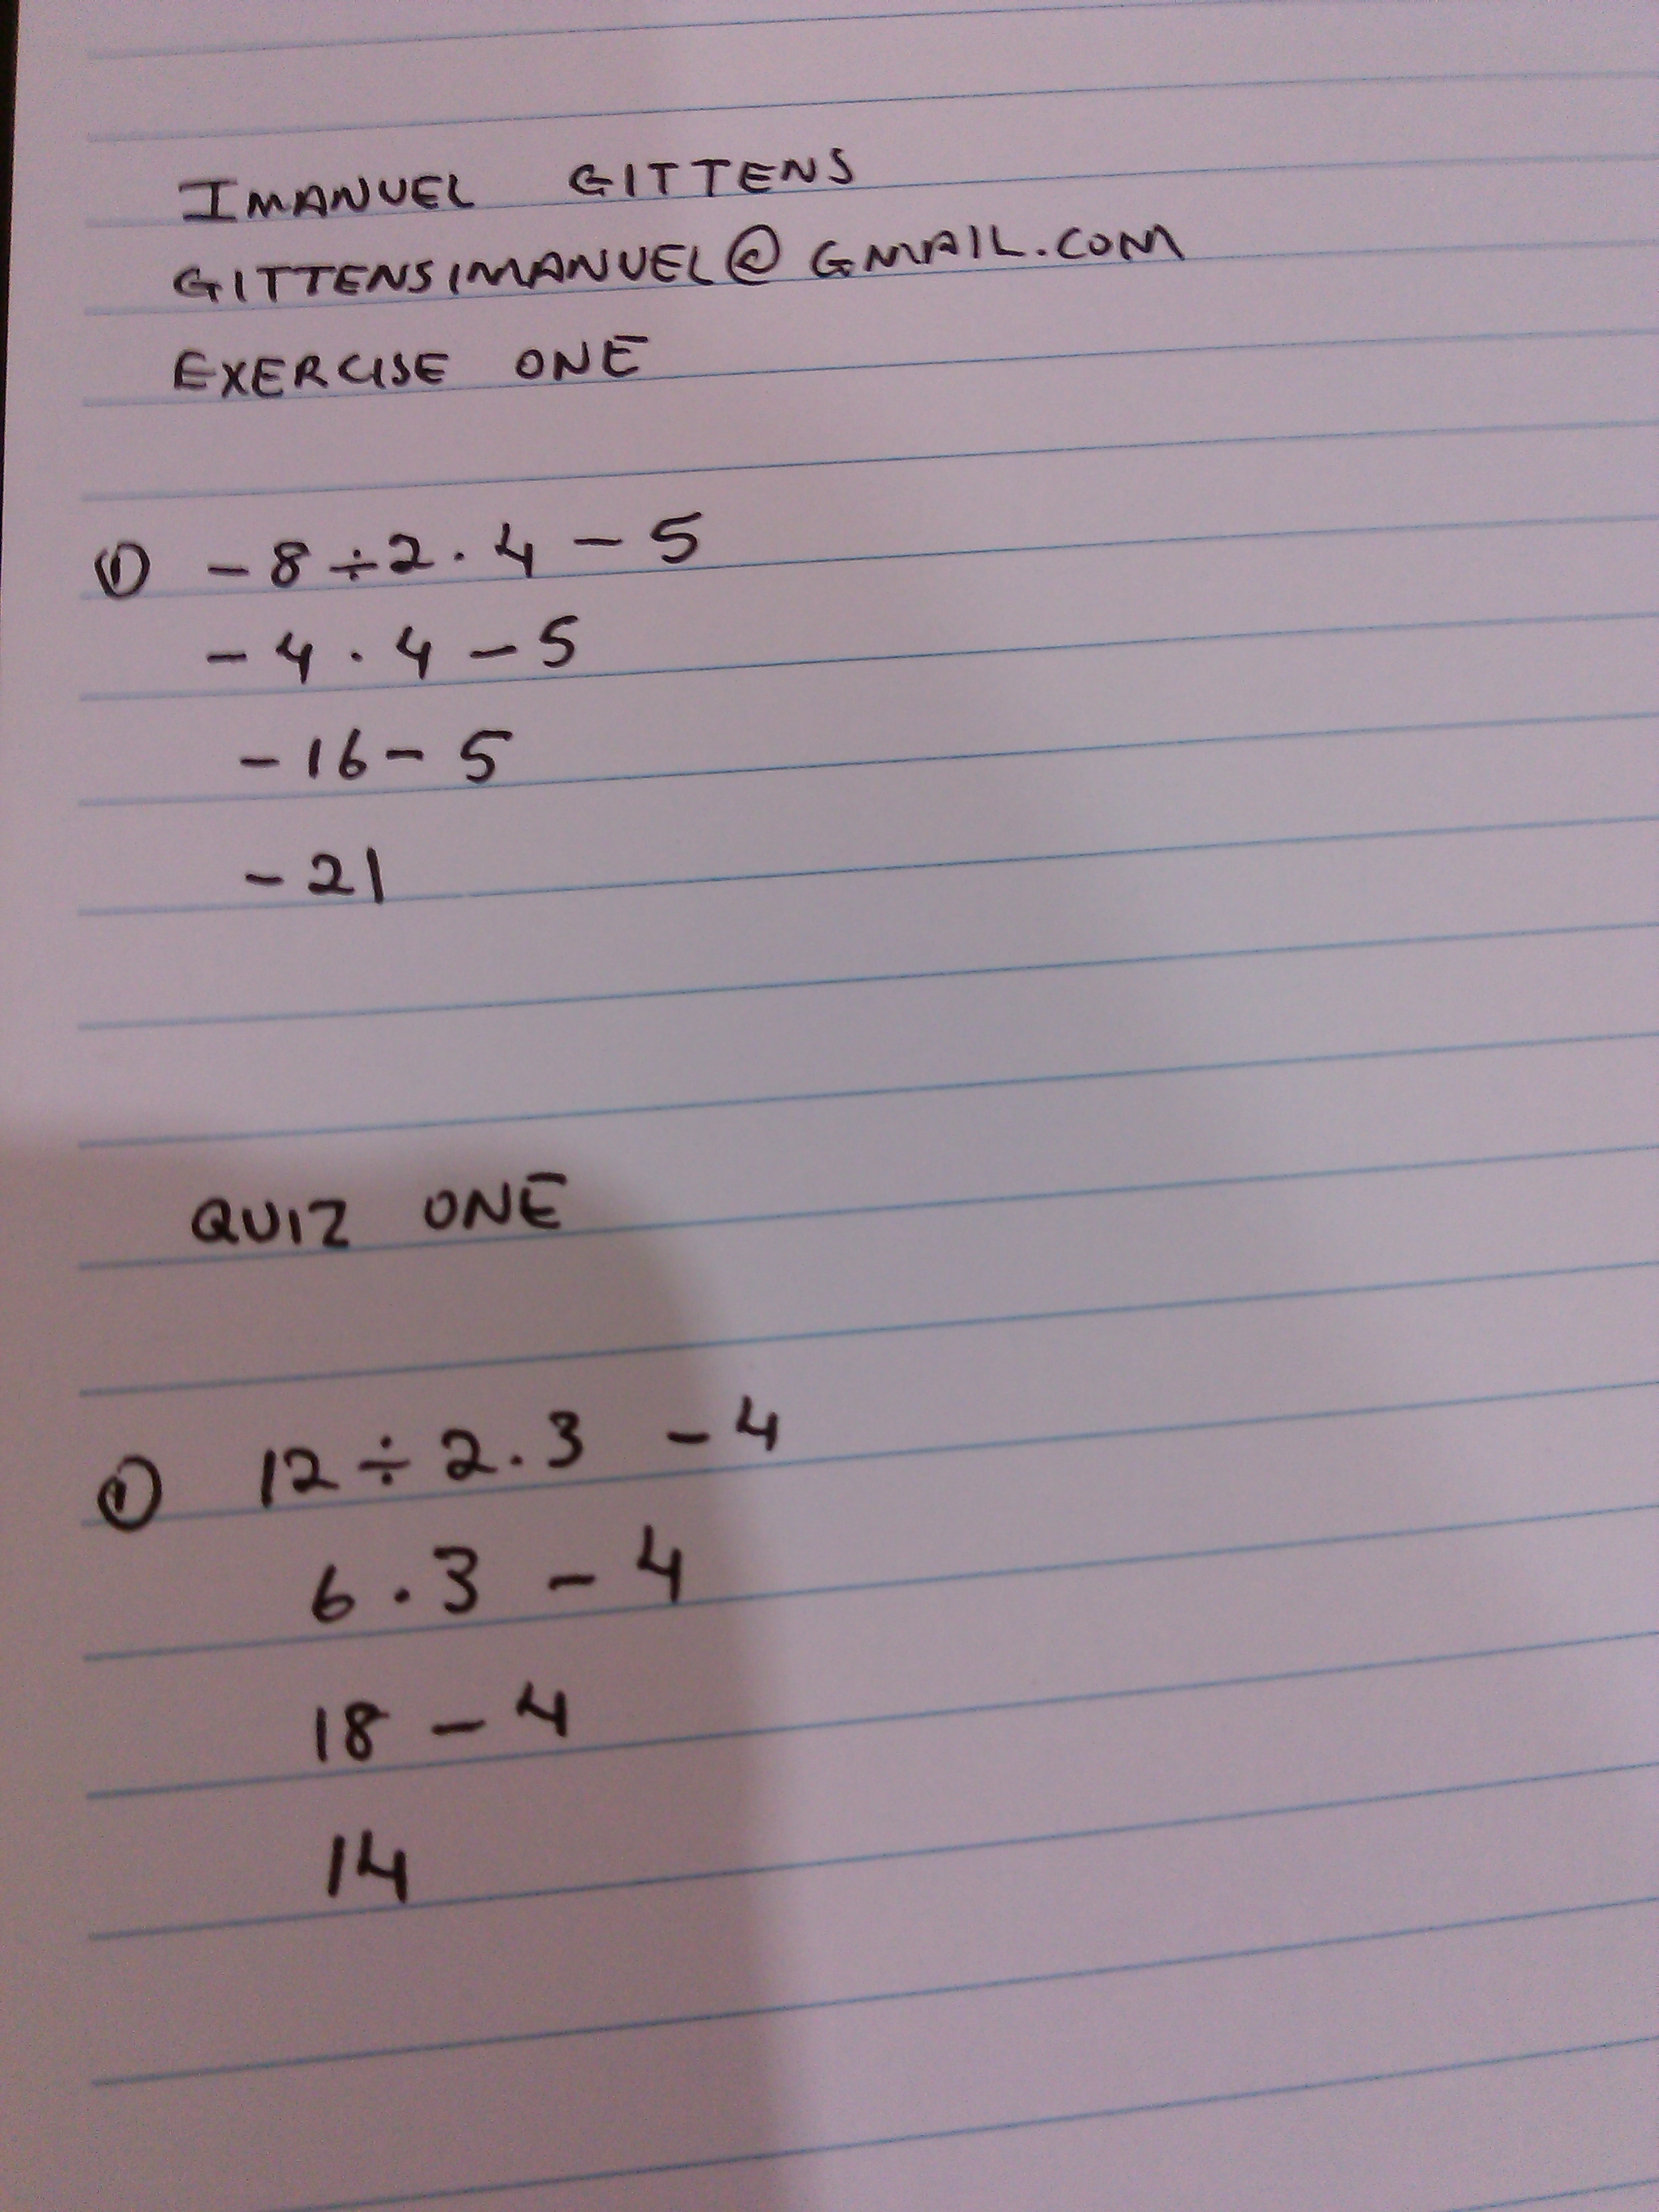 IMANUEL GITTENS
GITTENSIMANUEL@GMAIL.COM
EXERCISE ONE
① -8÷2·4-5
-4·4-5
-16-5
-21
QUIZ ONE
① 12÷2.3 -4
6·3-4
18-4
14